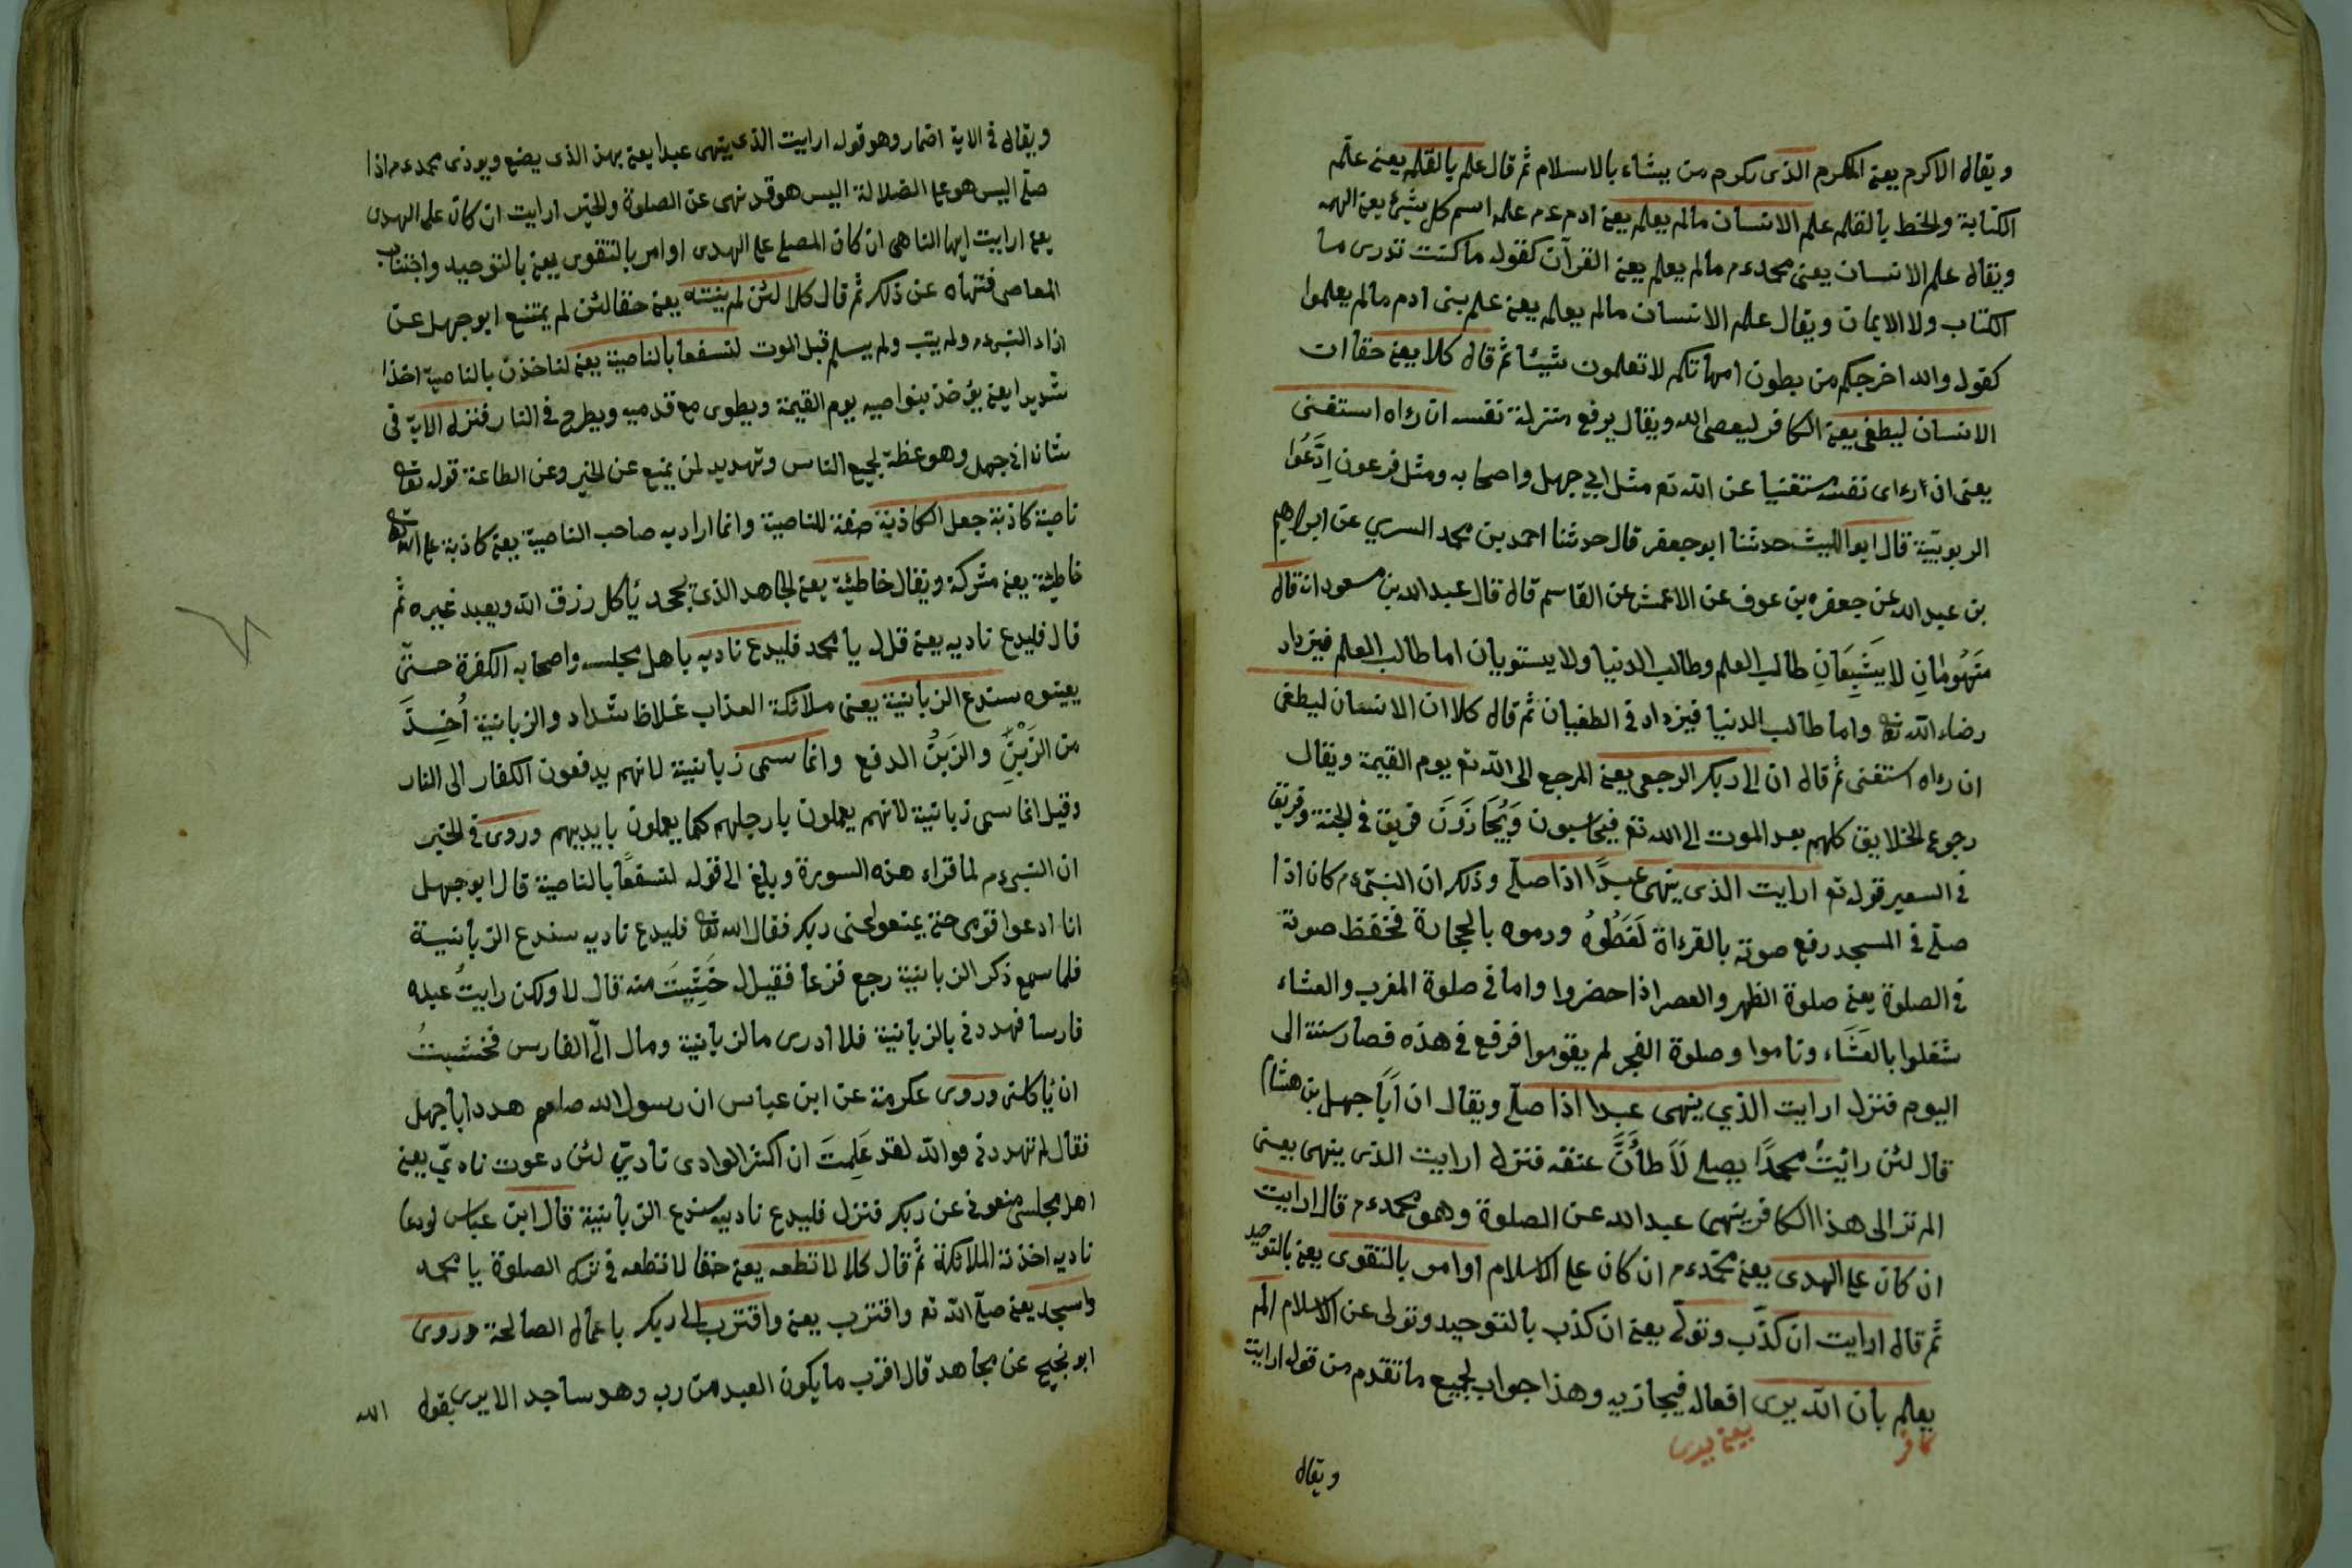 ويقال الاكرم يعنى المكرم الذى يكرم من يشاء بالاسلام ثم قال علم بالقلم يعنى علّم
الكتابة والخط بالقلم علم الانسان مالم يعلم يعنى ادم عم علمه اسم كل شيئ يعنى الهمه
ويقال علم الانسان يعنى محمد عم مالم يعلم يعنى القرآن كقوله ما كنت تدرى ما
الكتاب ولا الايمان ويقال علم الانسان مالم يعلم يعنى علم بنى ادم مالم يعلموا
كقوله والله اخرجكم من بطون امهاتكم لا تعلمون شيئا ثم قال كلا يعنى حقا ان
الانسان ليطغى يعنى الكافر ليعصى الله ويقال يرفع منزلة نفسه ان رءاه استغنى
يعنى ان رءاى نفسه مستغنيا عن الله تع مثل ابى جهل واصحابه ومثل فرعون اِدَّعُوا
الربوبيّة قال ابو الليث حدثنا ابو جعفر قال حدثنا احمد بن محمد السري عن ابراهيم
بن عبد الله عن جعفر بن عوف عن الاعمش عن القاسم قال قال عبد الله بن مسعود انه قال
مَنْهُومَانِ لا يَشْبِعَانِ طالب العلم وطالب الدنيا ولا يستويان اما طالب العلم فيزداد
رضاء الله تعا واما طالب الدنيا فيزداد فى الطغيان ثم قال كلا ان الانسان ليطغى
ان رءاه استغنى ثم قال ان الى ربك الرجعى يعنى المرجع الى الله تع يوم القيمة ويقال
رجوع الخلايق كلهم بعد الموت الى الله تع فيحاسبون وَيُجَازَوْنَ فريق فى الجنة وفريق
فى السعير قوله تع ارايت الذى ينهى عبدًا اذا صلى وذلك ان النبى عم كان اذا
صلّى فى المسجد رفع صوته بالقراءة لَغَطُوهُ ورموه بالحجارة فخفظ صوته
فى الصلوة يعنى صلوة الظهر والعصر اذا حضروا واما فى صلوة المغرب والعشاء
شغلوا بالعَشَاء وناموا وصلوة الفجر لم يقوموا فرفع فى هذه فصار سنة الى
اليوم فنزل ارايت الذي ينهى عبدا اذا صلى ويقال ان اَبَا جهل بن هشام
قال لئن رائيتُ محمدًا يصلى لَاَطأَنَّ عنقه فنزل ارايت الذى ينهى يعنى
الم تر الى هذا الكافر ينهى عبد الله عن الصلوة وهو محمد عم قال ارايت
ان كان على الهدى يعنى محمد عم ان كان على الاسلام او امر بالتقوى يعنى بالتوحيد
ثم قال ارايت ان كذّب وتولّى يعنى ان كذب بالتوحيد وتولى عن الاسلام الم
يعلم بأن الله يرى افعاله فيجازيه وهذا جواب لجميع ما تقدم من قوله ارايت
كافر يعنى يرى
ويقال
ويقال فى الاية اضمار وهو قوله ارايت الذى ينهى عبدا يعنى بهذا الذى يصنع ويوذى محمد عم اذا
صلّى اليس هو على الضلالة اليس هو قد نهى عن الصلوة والخير ارايت ان كان على الهدى
يعنى ارايت ايها الناهى ان كان المصلى على الهدى او امر بالتقوى يعنى بالتوحيد واجتناب
المعاصى فتنهاه عن ذلك ثم قال كلا لئن لم ينته يعنى حقا لئن لم يمتنع ابو جهل عن
اذاء النبى عم ولم يتب ولم يسلم قبل الموت لنسفعا بالناصية يعنى لناخذن بالناصية اخذا
شديدا يعنى يؤخذ بنواصيه يوم القيمة ويطوى مع قدميه ويطرح فى النار فنزل الاية فى
شان ابى جهل وهو عظة لجميع الناس وتهديد لمن يمنع عن الخير وعن الطاعة قوله تعا
ناصية كاذبة جعل الكاذبة صفة للناصية وانما اراد به صاحب الناصية يعنى كاذبة على الله تعا
خاطئة يعنى مشركة ويقال خاطئة يعنى الجاهد الذى يجحد يأكل رزق الله ويعبد غيره ثم
قال فليدع ناديه يعنى قل له يا محمد فليدع ناديه باهل مجلسه واصحابه الكفرة حتى
يعينوه سندع الزبانية يعنى ملائكة العذاب غلاظ شداد والزبانية اُخِذَ
من الزَبْنِ والزَبْنُ الدفع وانما سمى زبانية لانهم يدفعون الكفار الى النار
وقيل انما سمى زبانية لانهم يعملون بارجلهم كما يعملون بايديهم وروى فى الخبر
ان النبى عم لما قراء هذه السورة وبلغ الى قوله لنسفعًا بالناصية قال ابو جهل
انا ادعوا قومى حتى يمنعوا عنى ربك فقال الله تعا فليدع ناديه سندع الزبانية
فلما سمع ذكر الزبانية رجع فزعا فقيل له خَشِيتَ منه قال لا ولكن رايتُ عبده
فارسا فهددنى بالزبانية فلا ادرى ما الزبانية ومال الىّ الفارس فخشيتُ
ان يأكلنى وروى عكرمة عن ابن عباس ان رسول الله صلعم هدد ابا جهل
فقال لم تهددنى فوالله لقد عَلِمتَ ان اكثر الوادى ناديّ لئن دعوت ناديّ يعنى
اهل مجلسى منعونى عن ربك فنزل فليدع ناديه سندع الزبانية قال ابن عباس لو دعا
ناديه اخذته الملائكة ثم قال كلا لا تطعه يعنى حقا لا تطعه فى ترك الصلوة يا محمد
واسجد يعنى صل لله تع واقترب يعنى واقترب الى ربك باعمال الصالحة وروى
ابو نجيح عن مجاهد قال اقرب ما يكون العبد من ربه وهو ساجد الا يرى يقول
الله